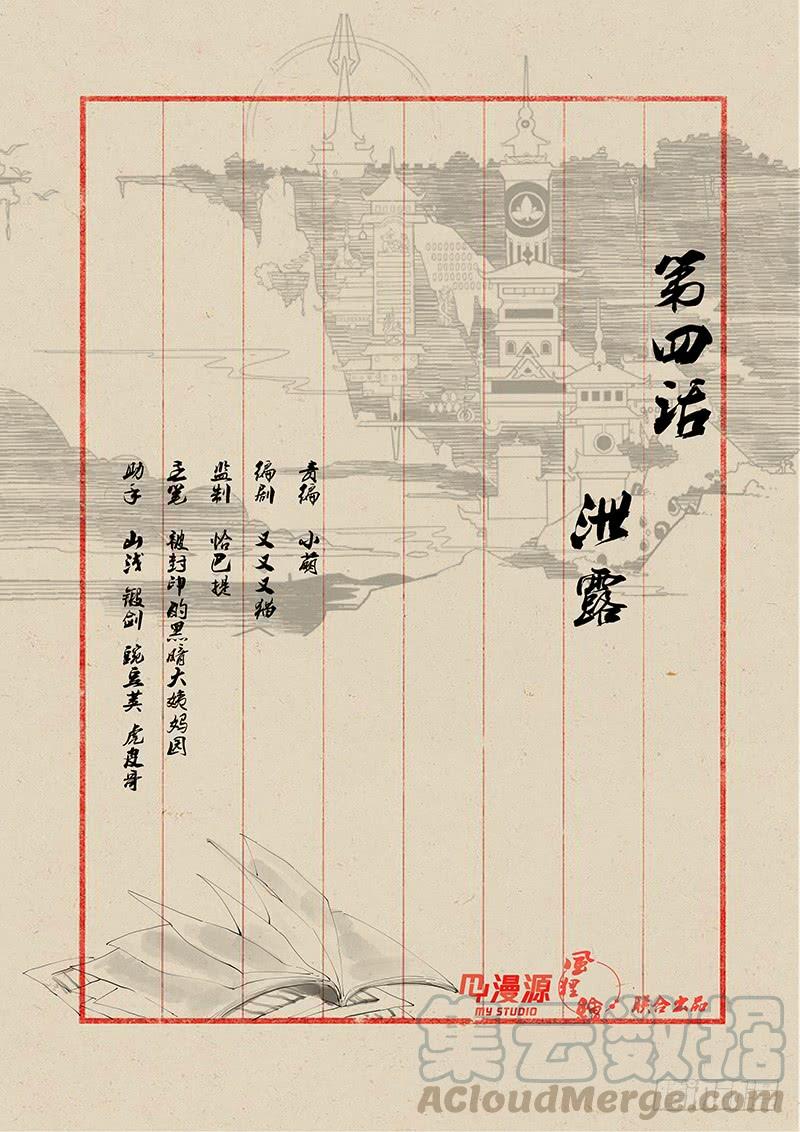 第四话
泄露
责编 小萌
编剧 又又又猫
监制 恰巴提
主笔 被封印的黑暗大姨妈园
助手 山浅 锻剑 豌豆荚 虎皮哥
漫源
MY STUDIO
联合出品
集云数据
ACloudMerge.com